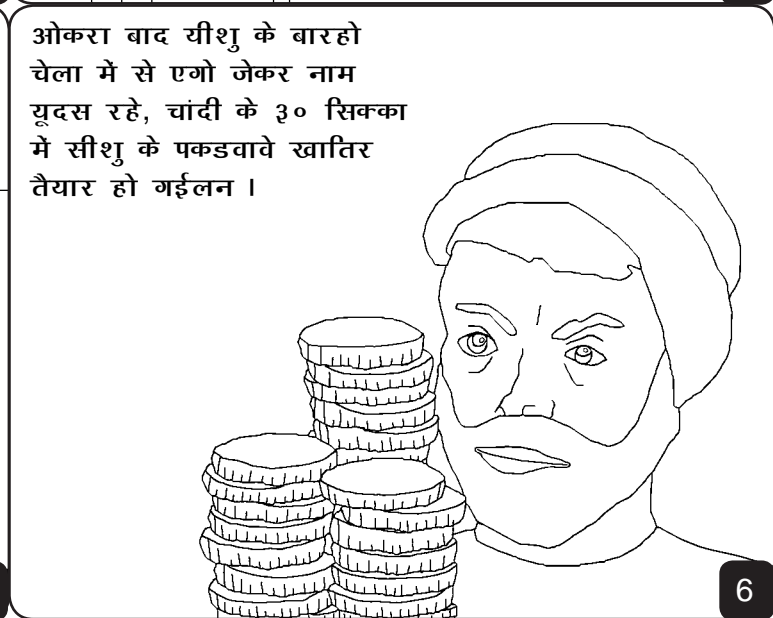 ओकरा बाद यीशु के बारहो
चेला में से एगो जेकर नाम
यूदस रहे, चांदी के ३० सिक्का
में सीशु के पकडवावे खातिर
तैयार हो गईलन ।
6